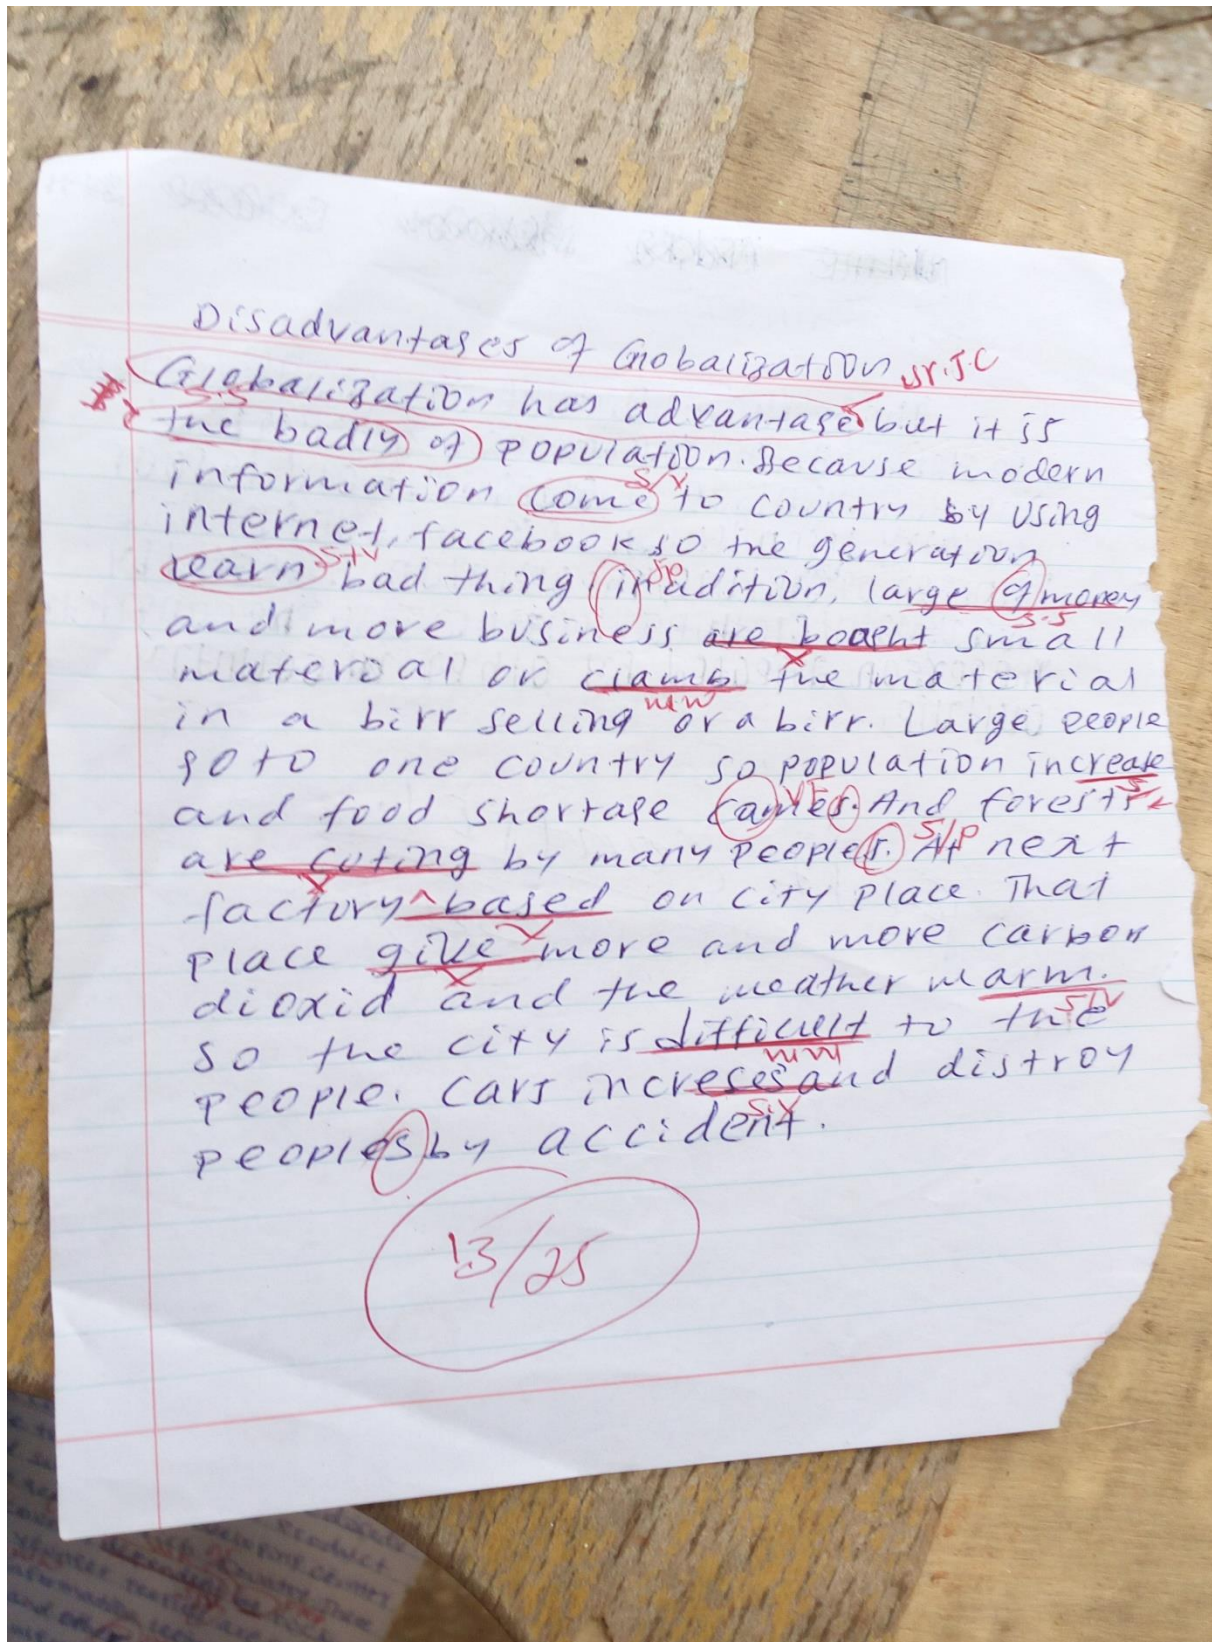 Disadvantages of Globalization
Globalization has advantage but it is
the badly of population. Because modern
information come to country by using
internet, facebook so the generation
learn bad thing in adition, large of money
and more business are bought small
materoal or clamb the material
in a birr selling or a birr. Large people
go to one country so population increase
and food shortage cames. And forests
are cuting by many peoples. At next
factory based on city place. That
place give more and more carbon
dioxid and the weather warm.
So the city is difficult to the
people. Cars increses and distroy
peoples by accident.
S.S
S/V
S+V
SP
S.S
X
WW
VF
S/P
X
^
X
S/V
WW
S/V
13/25